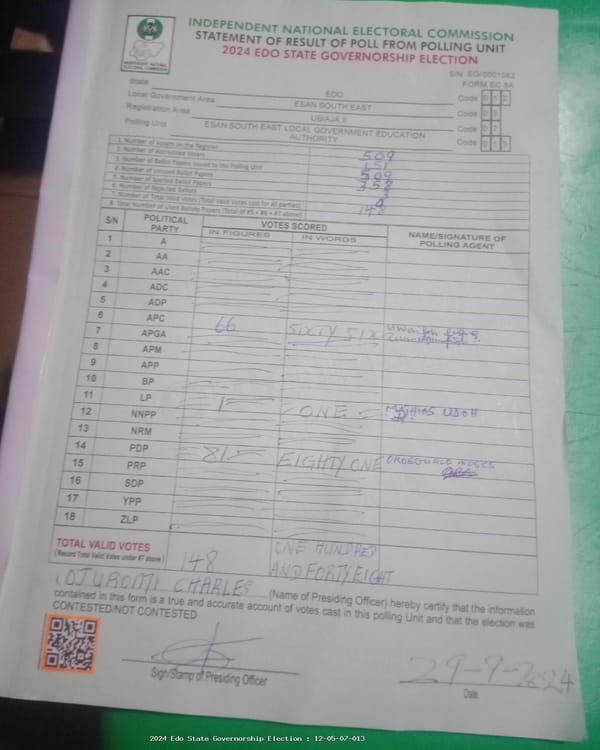 INDEPENDENT NATIONAL ELECTORAL COMMISSION
STATEMENT OF RESULT OF POLL FROM POLLING UNIT
2024 EDO STATE GOVERNORSHIP ELECTION
INDEPENDENT NATIONAL ELECTORAL COMMISSION
S/N: EG/0001083
FORM EC 8A
State EDO Code 0 1 2
Local Government Area ESAN SOUTH EAST Code 0 5
Registration Area UBIAJA II Code 0 7
Polling Unit ESAN SOUTH EAST LOCAL GOVERNMENT EDUCATION AUTHORITY Code 0 1 3
1. Number of Voters on the Register 509
2. Number of Accredited Voters 151
3. Number of Ballot Papers Issued to the Polling Unit 509
4. Number of Unused Ballot Papers 358
5. Number of Spoiled Ballot Papers
6. Number of Rejected Ballots
7. Number of Total Valid Votes (Total valid votes cast for all parties) 148
8. Total Number of Used Ballot Papers (Total of #5 + #6 + #7 above)
S/N POLITICAL PARTY VOTES SCORED NAME/SIGNATURE OF POLLING AGENT
IN FIGURES IN WORDS
1 A
2 AA
3 AAC
4 ADC
5 ADP
6 APC 66 SIXTY SIX
7 APGA
8 APM
9 APP
10 BP
11 LP 1 ONE MATHIAS UDOH
12 NNPP
13 NRM
14 PDP 81 EIGHTY ONE
15 PRP
16 SDP
17 YPP
18 ZLP
TOTAL VALID VOTES 148 ONE HUNDRED AND FORTY EIGHT
(Record Total Valid Votes under #7 above)
I, OJUROMI CHARLES (Name of Presiding Officer) hereby certify that the information
contained in this form is a true and accurate account of votes cast in this polling Unit and that the election was
CONTESTED/NOT CONTESTED
Sign/Stamp of Presiding Officer
29-9-2024
Date
2024 Edo State Governorship Election : 12-05-07-013